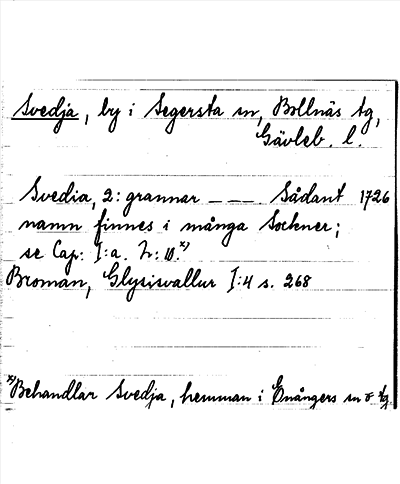 Svedja, by i Segersta sn, Bollnäs tg,
Gävleb. l.
Svedia, 2: grannar — — — Sådant 1726
namn finnes i många Sockner;
se Cap: I:a. h: 10.x)
Broman, Glysisvallur I:4 s. 268
x) Behandlar Svedja, hemman i Enångers sn o tg